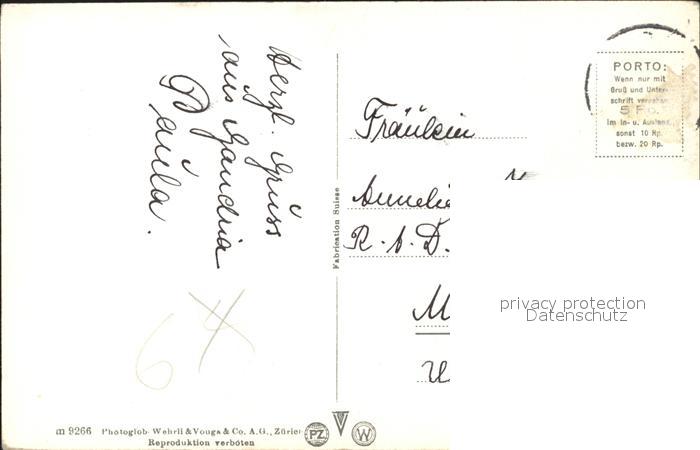 Herzl. Grüss
aus Gandria
Paula.
Fräulein
Annelie
R.A.D.
M
U
PORTO:
Wenn nur mit
Gruß und Unter-
schrift versehen
5 Rp.
im In- u. Ausland,
sonst 10 Rp.
bezw. 20 Rp.
Fabrication Suisse
privacy protection
Datenschutz
m 9266 Photoglob-Wehrli & Vouga & Co. A.G., Zürich
PZ W
Reproduktion verboten